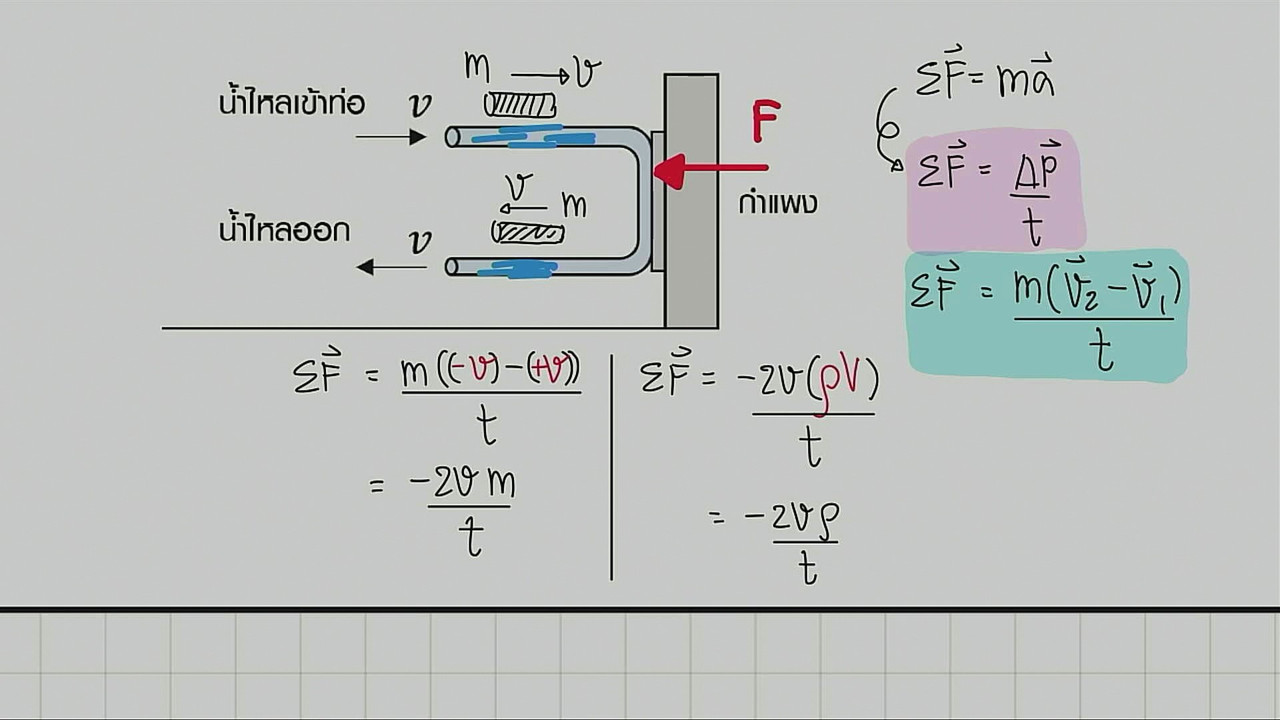 m → v
น้ำไหลเข้าท่อ v
F
v ← m
กำแพง
น้ำไหลออก v
ΣF⃗ = ma⃗
ΣF⃗ = ΔP⃗ / t
ΣF⃗ = m(v⃗₂ − v⃗₁) / t
ΣF⃗ = m((-v) − (+v)) / t
= −2vm / t
ΣF⃗ = −2v(ρV) / t
= −2vρ / t